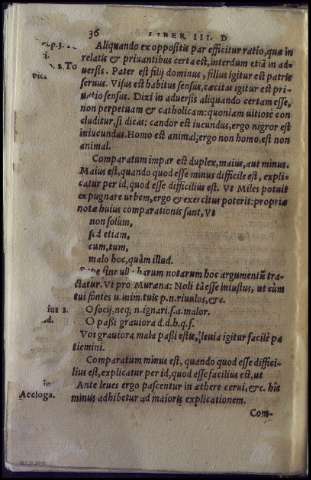 36 LIBER III. D
Aliquando ex oppositis par efficitur ratio, quæ in
relatis & priuantibus certa est, interdum etiã in ad-
uersis. Pater est filij dominus, filius igitur est patris
seruus. Visus est habitus sensus, cæcitas igitur est pri-
uatio sensus. Dixi in aduersis aliquando certam esse,
non perpetuam & catholicam: quoniam uitiose con
cluditur, si dicas: candor est iucundus, ergo nigror est
iniucundus. Homo est animal; ergo non homo, est non
animal.
Comparatum impar est duplex, maius, aut minus.
Maius est, quando quod esse minus difficile est, expli-
catur per id, quod esse difficilius est. Vt Miles potuit
expugnare urbem, ergo & exercitus poterit: propriæ
notæ huius comparationis sunt, Vt
non solùm,
sed etiam,
cum, tum,
malo hoc, quàm illud.
harum notarum hoc argumentũ tra-
ctatur. Vt pro Muræna: Noli tã esse iniustus, ut cùm
tui fontes u. inim. tuis p. n. riuulos, &c.
O socij, neq; n. ignari. s. a. malor.
O passi grauiora d. d. h. q. f.
Vos grauiora mala passi estis, leuia igitur facilè pa
tiemini.
Comparatum minus est, quando quod esse diffici-
lius est, explicatur per id, quod esse facilius est, ut
Ante leues ergo pascentur in æthere cerui, &c. his
Aecloga.
minus adhibetur ad maioris explicationem.
Com-